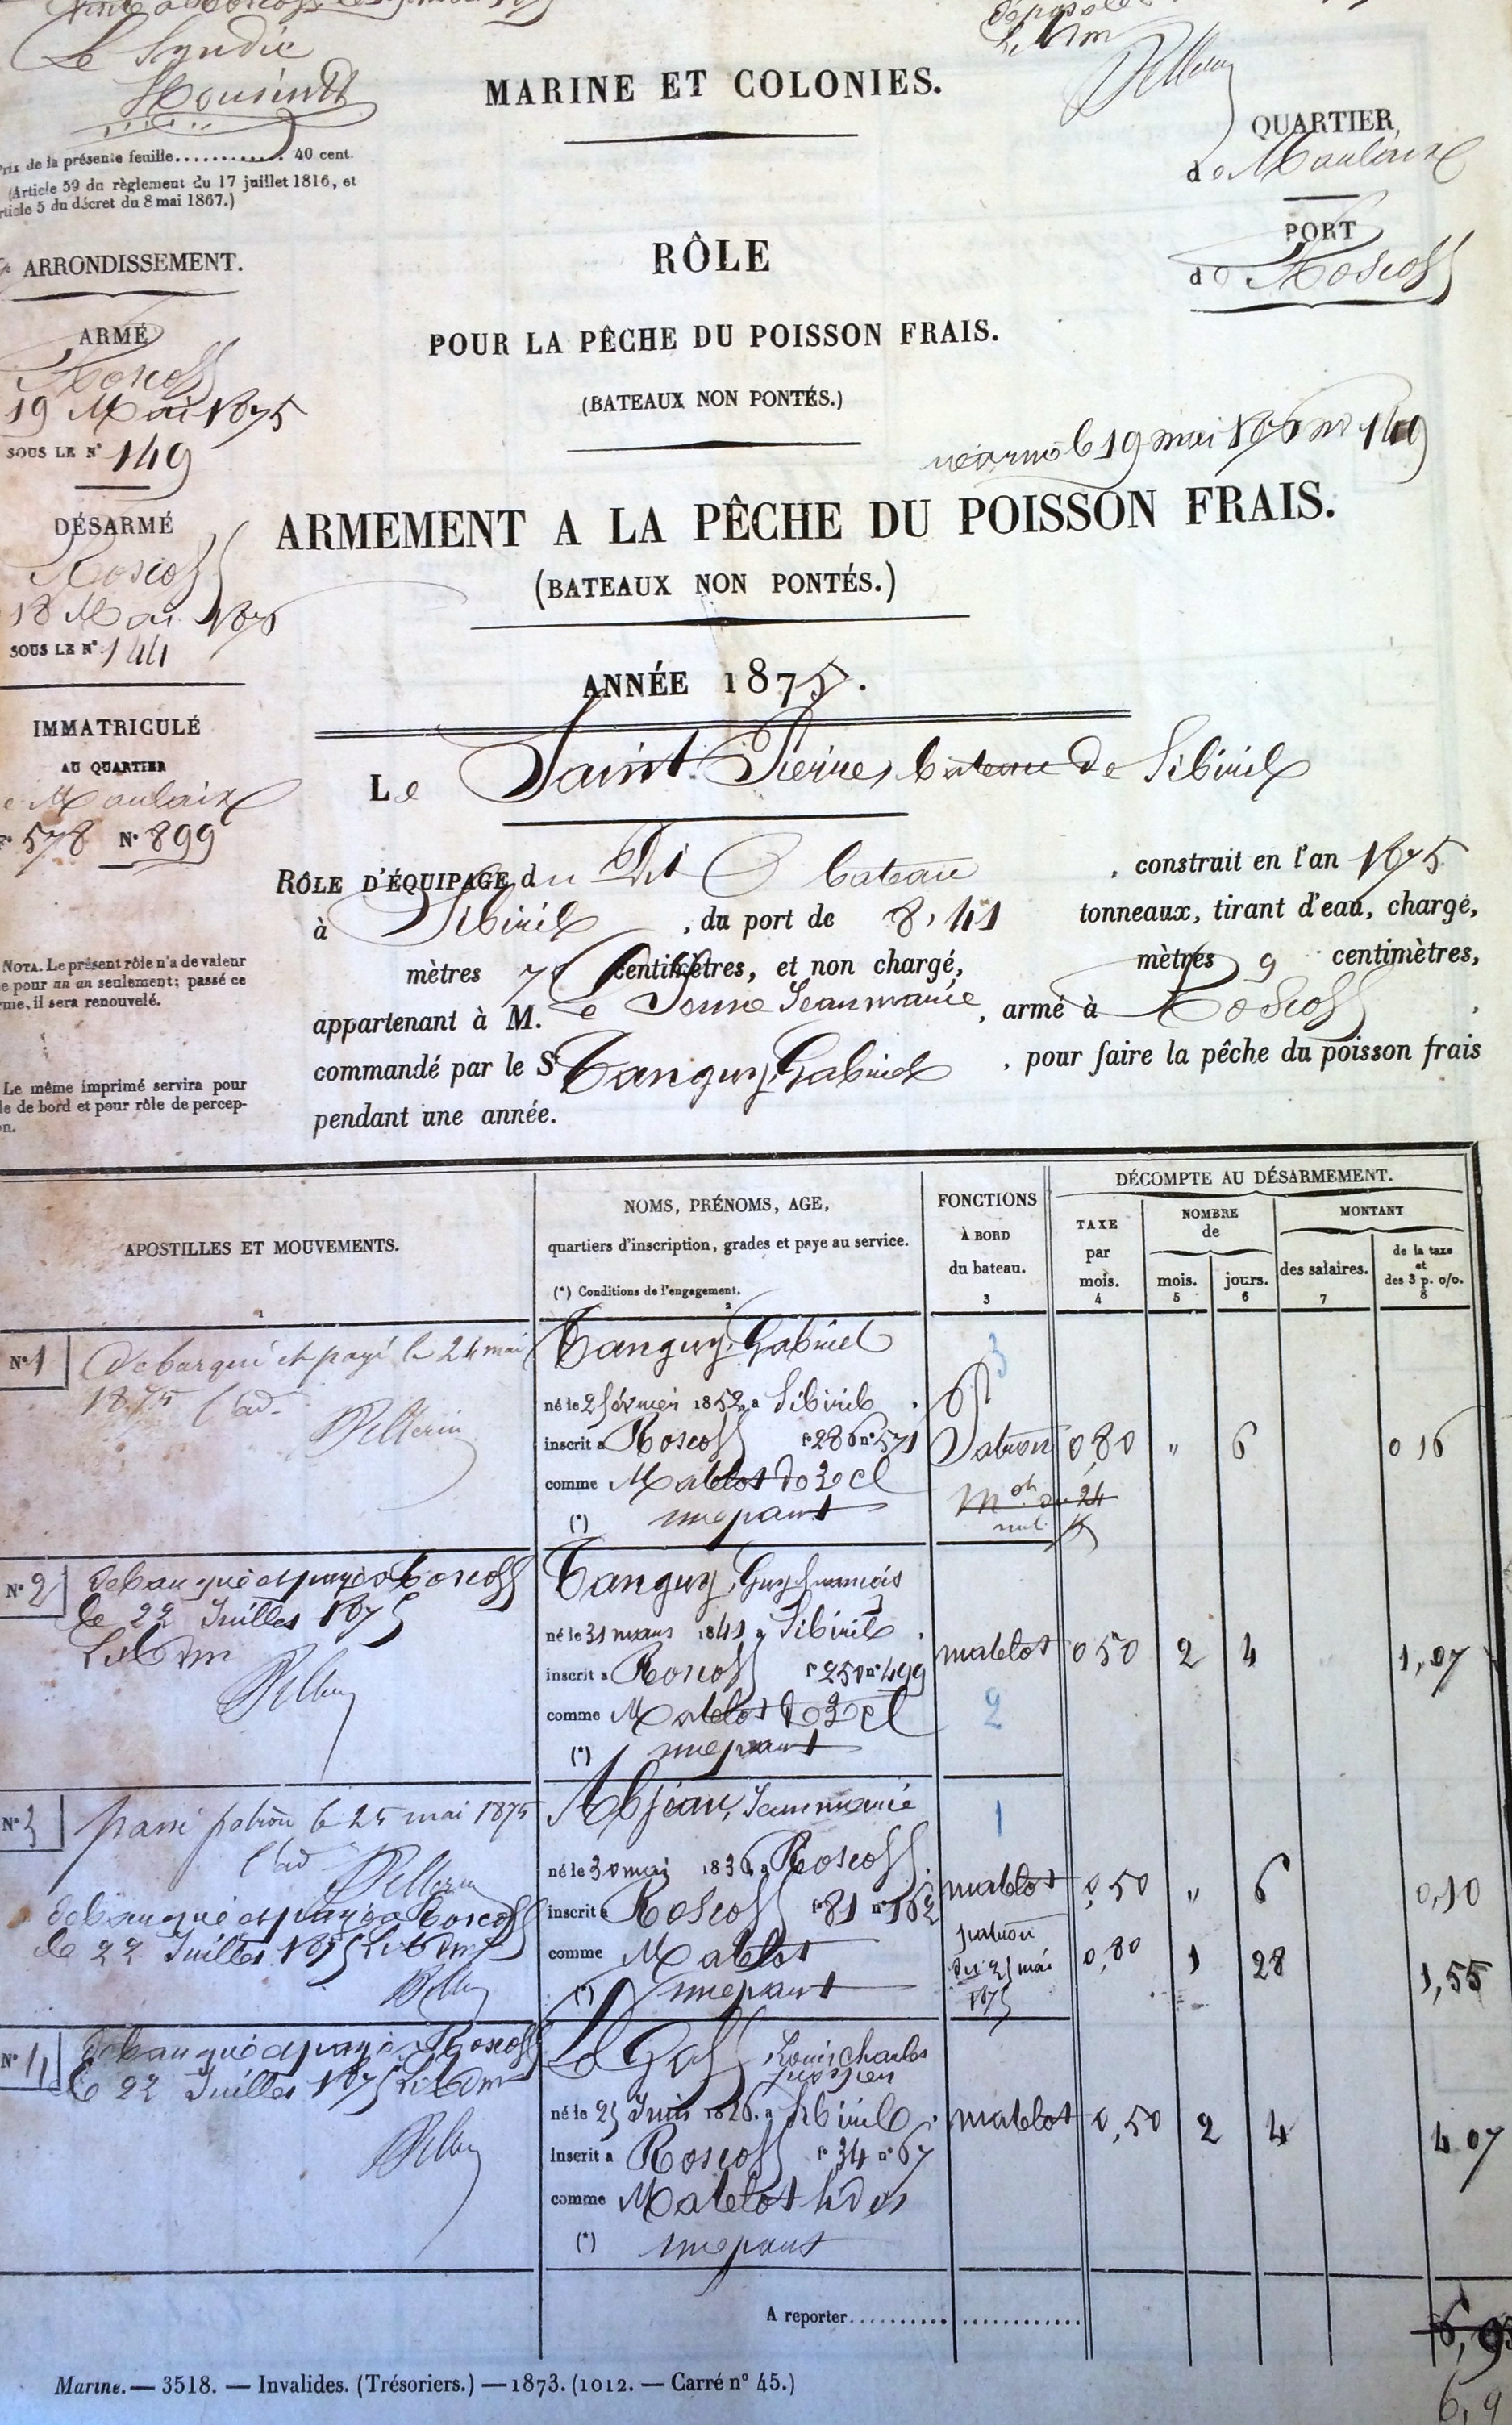 Le Syndic
MARINE ET COLONIES.
Prix de la présente feuille............ 40 cent.
(Article 59 du règlement du 17 juillet 1816, et
article 5 du décret du 8 mai 1867.)
QUARTIER
de Morlaix
PORT
de Roscoff
ARRONDISSEMENT.
RÔLE
POUR LA PÊCHE DU POISSON FRAIS.
(BATEAUX NON PONTÉS.)
ARMÉ
Roscoff
19 Mai 1875
SOUS LE N° 149
réarmé le 19 mai 1876 n° 149
DÉSARMÉ
Roscoff
18 Mai 1876
SOUS LE N° 144
ARMEMENT A LA PÊCHE DU POISSON FRAIS.
(BATEAUX NON PONTÉS.)
ANNÉE 1875.
IMMATRICULÉ
AU QUARTIER
de Morlaix
F° 578 N° 899
Le Saint Pierre, bateau de Sibiril
RÔLE D'ÉQUIPAGE du Dit bateau, construit en l'an 1875
à Sibiril, du port de 8,41 tonneaux, tirant d'eau, chargé,
mètres centimètres, et non chargé, mètres centimètres,
appartenant à M. Jeanmarie, armé à Roscoff,
commandé par le Sr Tanguy, Gabriel, pour faire la pêche du poisson frais
pendant une année.
NOTA. Le présent rôle n'a de valeur
que pour un an seulement; passé ce
terme, il sera renouvelé.
Le même imprimé servira pour
rôle de bord et pour rôle de percep-
tion.
APOSTILLES ET MOUVEMENTS.
1
NOMS, PRÉNOMS, AGE,
quartiers d'inscription, grades et paye au service.
(*) Conditions de l'engagement.
2
FONCTIONS
À BORD
du bateau.
3
DÉCOMPTE AU DÉSARMEMENT.
TAXE
par
mois.
4
NOMBRE
de
mois.
5
jours.
6
MONTANT
des salaires.
7
de la taxe
et
des 3 p. o/o.
8
N° 1 débarqué et payé le 24 mai
1875
Pellerin
Tanguy, Gabriel
3
né le 2 février 1852 a Sibiril.
inscrit a Roscoff f° 286 n° 571 Patron 0,80 " 6 0 16
comme Matelot de 3e cl
(*) une part
N° 2 débarqué et payé a Roscoff
le 22 Juillet 1875
Tanguy, Guy françois
né le 31 mars 1841 a Sibiril.
inscrit a Roscoff f° 250 n° 499 matelot 0 50 2 4 1,07
comme Matelot de 3e cl
2
(*) une part
N° 3 passé patron le 25 mai 1875
Pellerin
débarqué et payé a Roscoff
le 22 Juillet 1875
Abjean, Jeanmarie
1
né le 30 mai 1836 a Roscoff.
inscrit a Roscoff f° 81 n° 162 matelot 0,50 " 6 0,10
comme Matelot
patron
du 25 mai
1875
0,80 1 28 1,55
(*) une part
N° 4 débarqué et payé a Roscoff
le 22 Juillet 1875
Le Gall, Louis Charles
né le 25 Juin 1826 a Sibiril. matelot 0,50 2 4 4 07
inscrit a Roscoff f° 34 n° 67
comme Matelot hds
(*) une part
A reporter
6,9
Marine. — 3518. — Invalides. (Trésoriers.) — 1873. (1012. — Carré n° 45.)